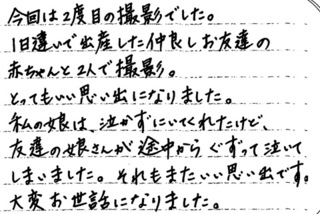 今回は2度目の撮影でした。
1日違いで出産した仲良しお友達の
赤ちゃんと2人で撮影。
とってもいい思い出になりました。
私の娘は、泣かずにいてくれたけど、
友達の娘さんが途中からぐずって泣いて
しまいました。それもまたいい思い出です。
大変お世話になりました。